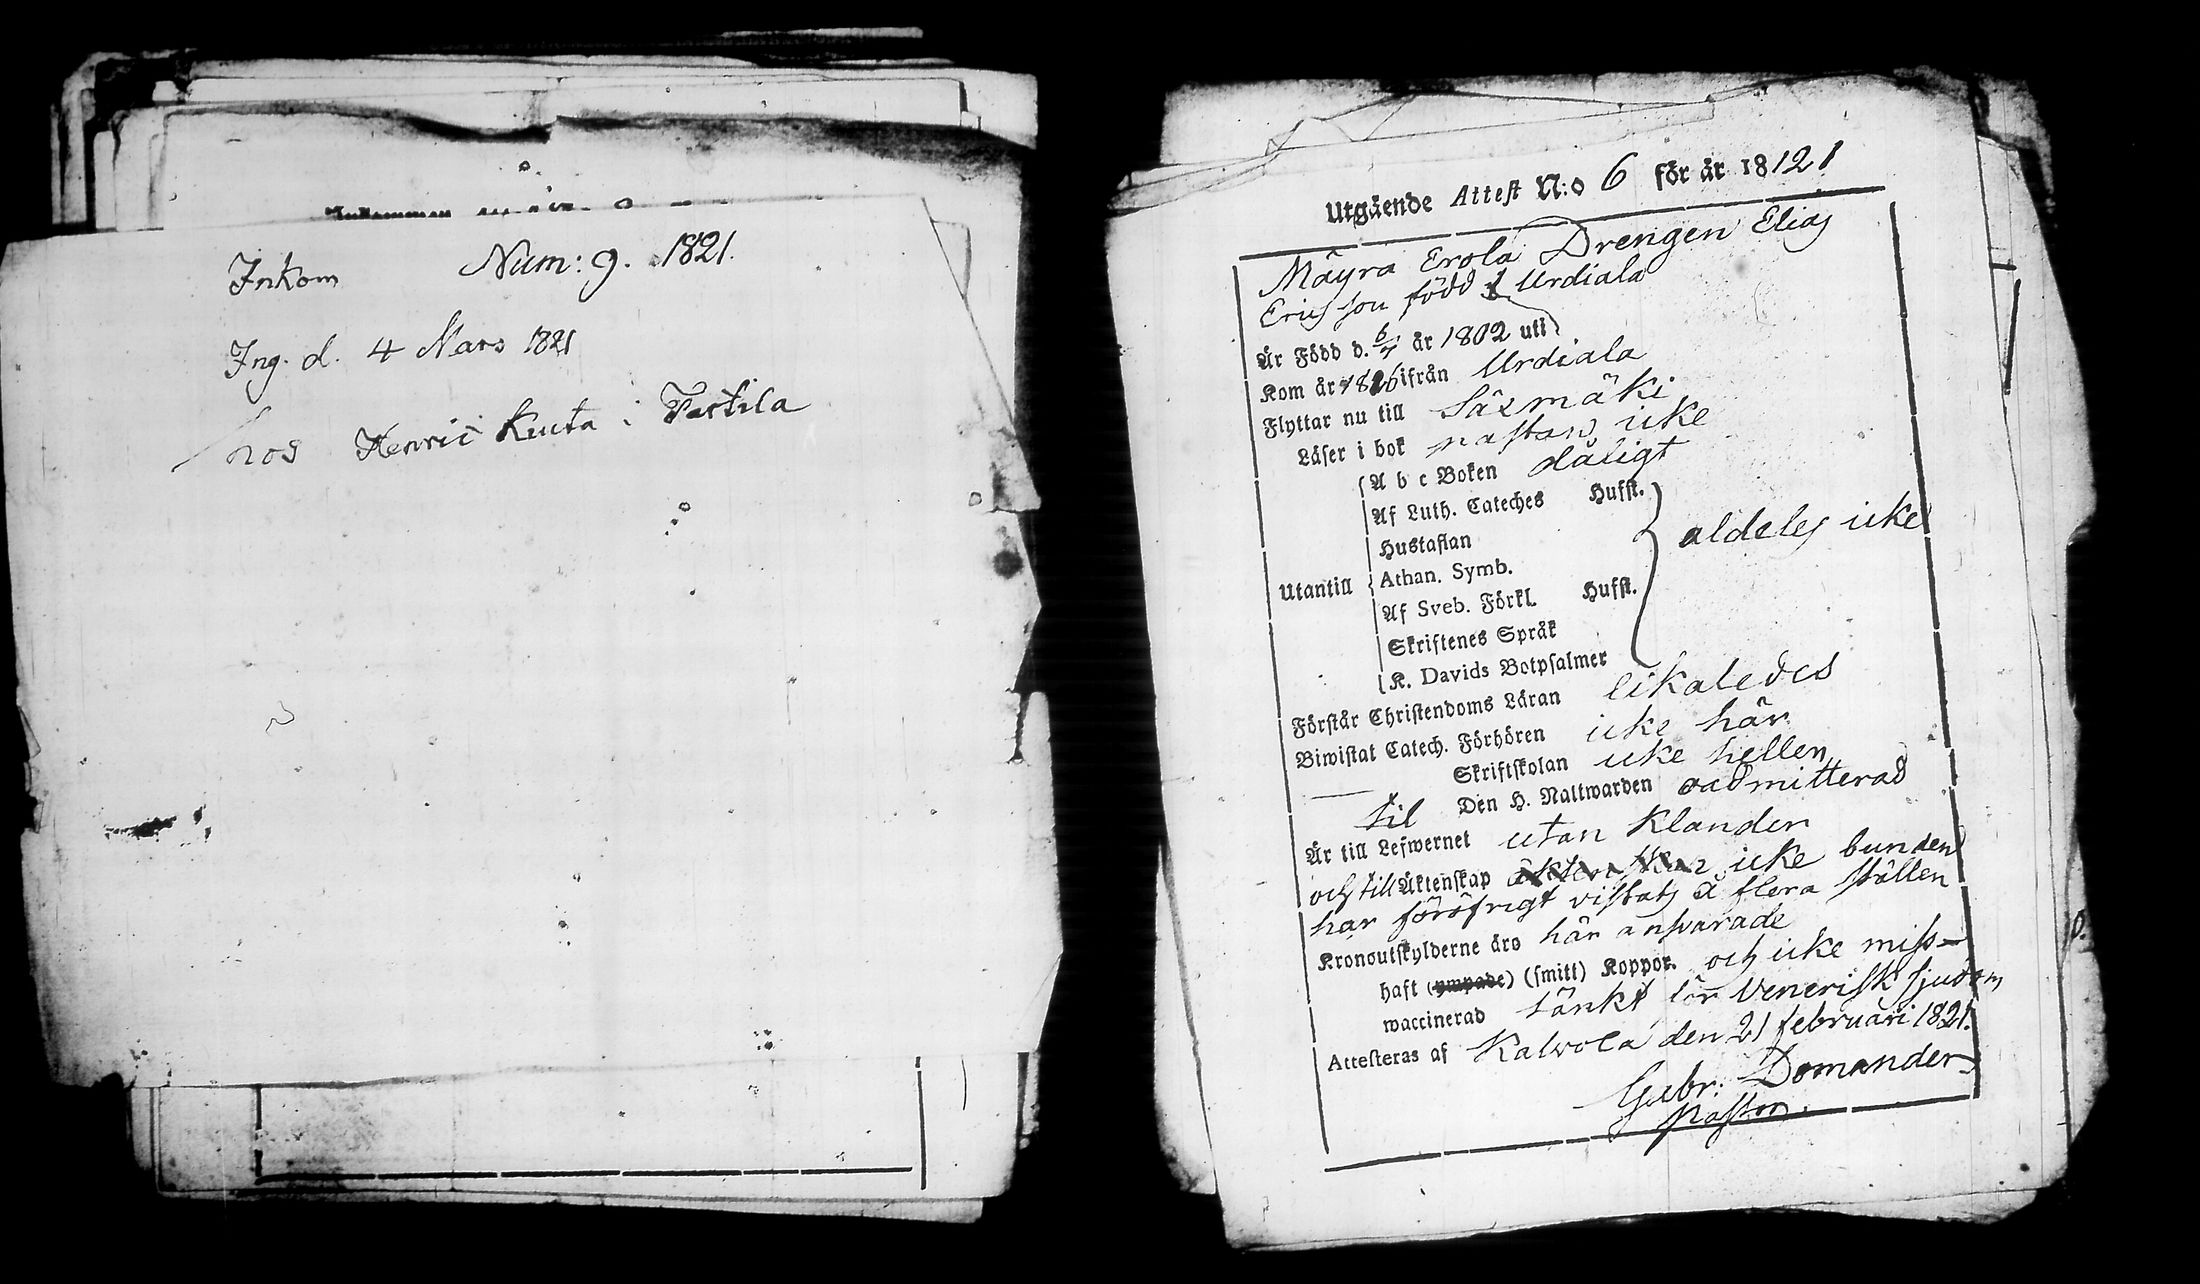 Inkom Num: 9. 1821.
Ing. d. 4 Mars 1821
hos Henric Kuuta i Tarttila
Utgående Attest N:o 6 för år 18121
Mäyra Erola Drengen Elias
Ericsson född i Urdiala
Är Född d. 6/7 år 1802 uti
Kom år 1816 ifrån Urdiala
Flyttar nu till Säxmäki
Läser i bok nästan icke
A b c Boken dåligt
Af Luth. Cateches Hufst.
Hustaflan
aldeles icke
Utantill Athan. Symb.
Af Sveb. Förkl. Hufst.
Skriftenes Språk
K. Davids Botpsalmer
Förstår Christendoms Läran likaledes
Biwistat Catech. Förhören icke här
Skriftskolan icke heller
til Den H. Nattwarden admitterad
Är till Lefwernet utan klander
och till Äktenskap icke bunden
har föröfrigt vistats å flera ställen
Kronoutskylderne äro här ansvarade
haft (ympade) (smitt) Koppor. och icke miss-
waccinerad tänkt för Venerisk sjukdom
Attesteras af Kalvola den 21 februari 1821.
Gabr: Domander
Pastor.